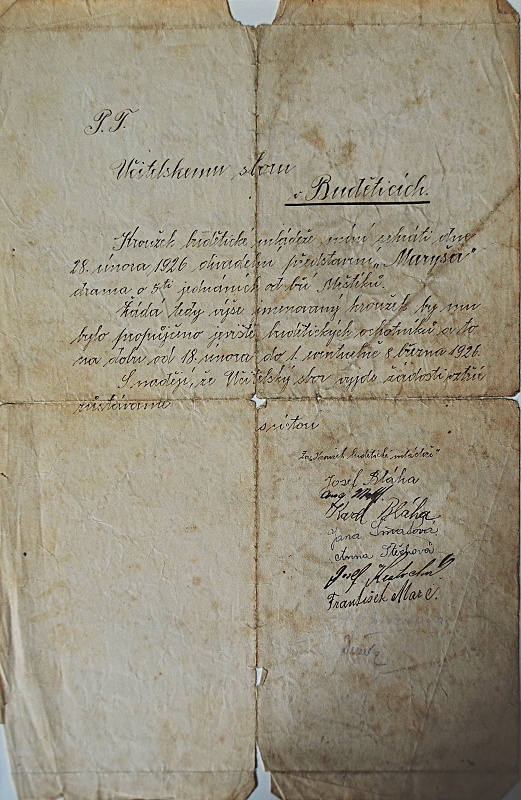 P. T.
Učitelskému sboru
v Buděticích.
Kroužek budětické mládeže míní sehráti dne
28. února 1926 divadelní představení „Maryša"
drama o 5ti jednáních od bří Mrštíků.
Žádá tedy výše jmenovaný kroužek by mu
bylo propůjčeno jeviště budětických ochotníků a to
na dobu od 18. února do 1. eventuelně 8. března 1926.
S nadějí, že Učitelský sbor vyjde žádosti vstříc
zůstáváme
s úctou
Za „Kroužek budětické mládeže"
Josef Bláha
Karel Bláha
Jana
Anna Štěchová
Josef
František Marc.